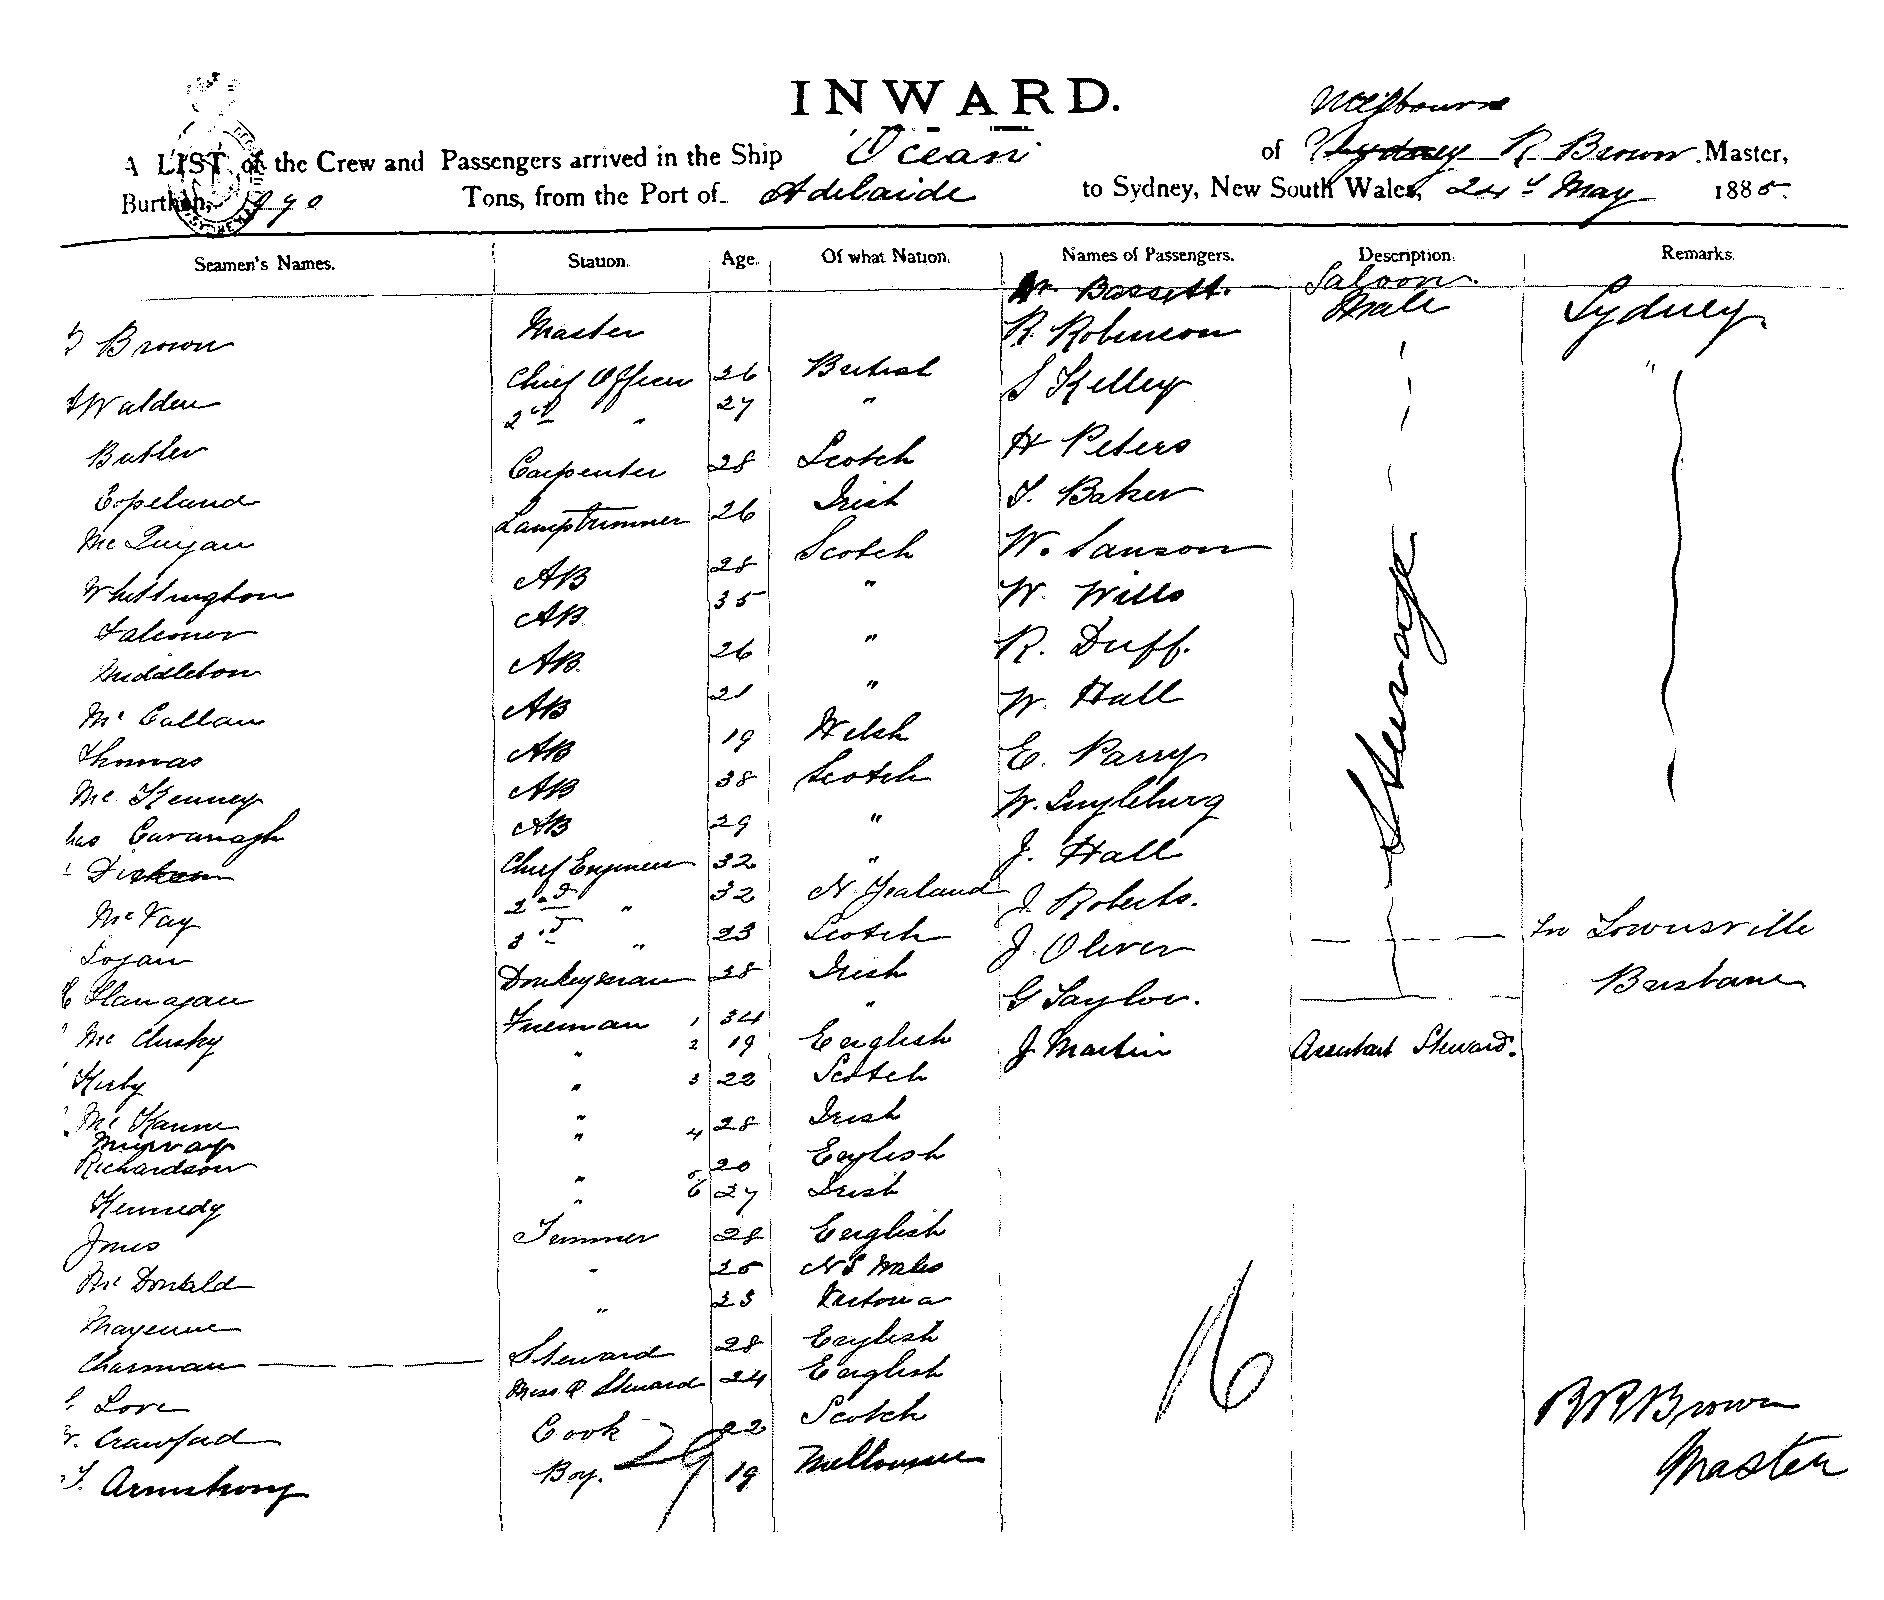 INWARD.
Melbourne
A LIST of the Crew and Passengers arrived in the Ship "Ocean" of Sydney R. Brown Master,
Burthen, 1090 Tons, from the Port of Adelaide to Sydney, New South Wales, 24th May 1885.
Seamen's Names. Station. Age. Of what Nation. Names of Passengers. Description. Remarks.
Mr. Bassett. Saloon
Brown Master R. Robinson Male Sydney
Walden Chief Officer 26 British S Kelley "
Butler 2nd " 27 " H Peters
Copeland Carpenter 28 Scotch T. Baker
Lamptrimmer 26 Irish W. Sanson
Whittington AB 28 Scotch W. Wills
Falconer AB 35 " R. Duff.
Middleton AB 26 " W. Hall Steerage
Mc Callan AB 21 " E. Parry
Thomas AB 19 Welsh W.
Mc Kenney AB 38 Scotch J. Hall
Cavanagh AB 29 " J. Roberts.
Chief Engineer 32 " J. Oliver In Townsville
Mc Fay 2nd " 32 N. Zealand G Taylor. Brisbane
Logan 3rd " 23 Scotch J Martin Assistant Steward.
Flanagan Donkeyman 28 Irish
Mc Clusky Fireman 1 34 "
Kirby " 2 19 English
" 3 22 Scotch
Murray " 4 28 Irish
Richardson " 5 20 English
Kennedy " 6 27 Irish
Jones Trimmer 28 English
Mc Donald " 25 N S Wales
" 23 Victoria
Charman Steward 28 English
Love Mess R Steward 24 English
Crawford Cook 22 Scotch
T. Armstrong Boy. 19 Melbourne
29
16
R R Brown
Master